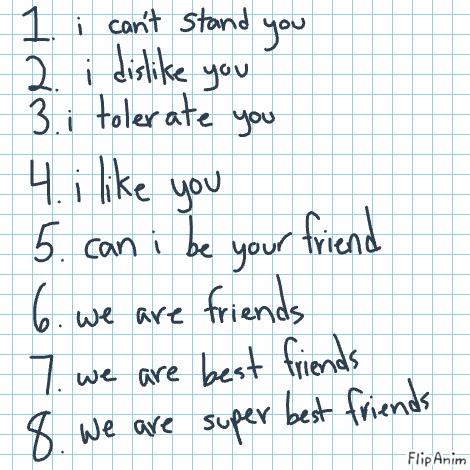 1. i can't stand you
2. i dislike you
3. i tolerate you
4. i like you
5. can i be your friend
6. we are friends
7. we are best friends
8. we are super best friends
FlipAnim